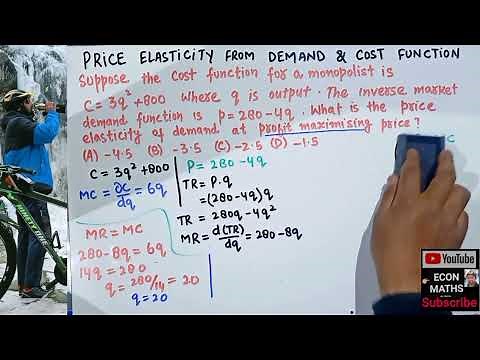 PRICE ELASTICITY FROM DEMAND & COST FUNCTION
Suppose the cost function for a monopolist is
C = 3q² + 800 where q is output. The inverse market
demand function is p = 280 - 4q. What is the price
elasticity of demand at profit maximising price?
(A) -4.5 (B) -3.5 (C) -2.5 (D) -1.5
C = 3q² + 800
MC = ∂c/dq = 6q
MR = MC
280 - 8q = 6q
14q = 280
q = 280/14 = 20
q = 20
P = 280 - 4q
TR = P.q
= (280 - 4q)q
TR = 280q - 4q²
MR = d(TR)/dq = 280 - 8q
C
YouTube
ECON
MATHS
Subscribe